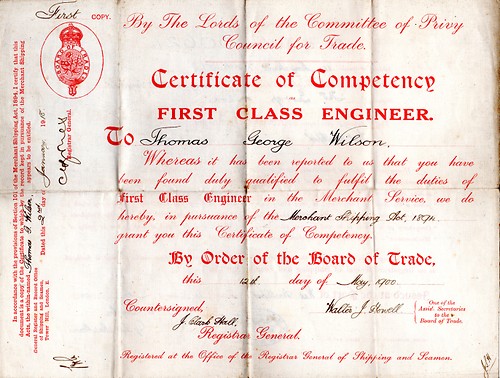 First COPY.
By The Lords of the Committee of Privy
Council for Trade.
Certificate of Competency
FIRST CLASS ENGINEER.
To Thomas George Wilson.
Whereas it has been reported to us that you have
been found duly qualified to fulfil the duties of
First Class Engineer in the Merchant Service, we do
hereby, in pursuance of the Merchant Shipping Act, 1894,
grant you this Certificate of Competency.
By Order of the Board of Trade,
this 12th day of May, 1900.
Countersigned,
J. Clark Hall.
Registrar General.
Walter J Howell
One of the
Assist. Secretaries
to the
Board of Trade.
Registered at the Office of the Registrar General of Shipping and Seamen.
BOARD OF TRADE
In accordance with the provisions of Section 101 of the Merchant Shipping Act, 1894, I certify that this
document is a copy of the Certificate to which by the record kept in pursuance of the Merchant Shipping
Acts, the within-named Thomas G. Wilson, appears to be entitled.
General Register and Record Office
of Shipping and Seamen,
Tower Hill, London. E.
Dated this 2nd day of January 1918.
Registrar General.